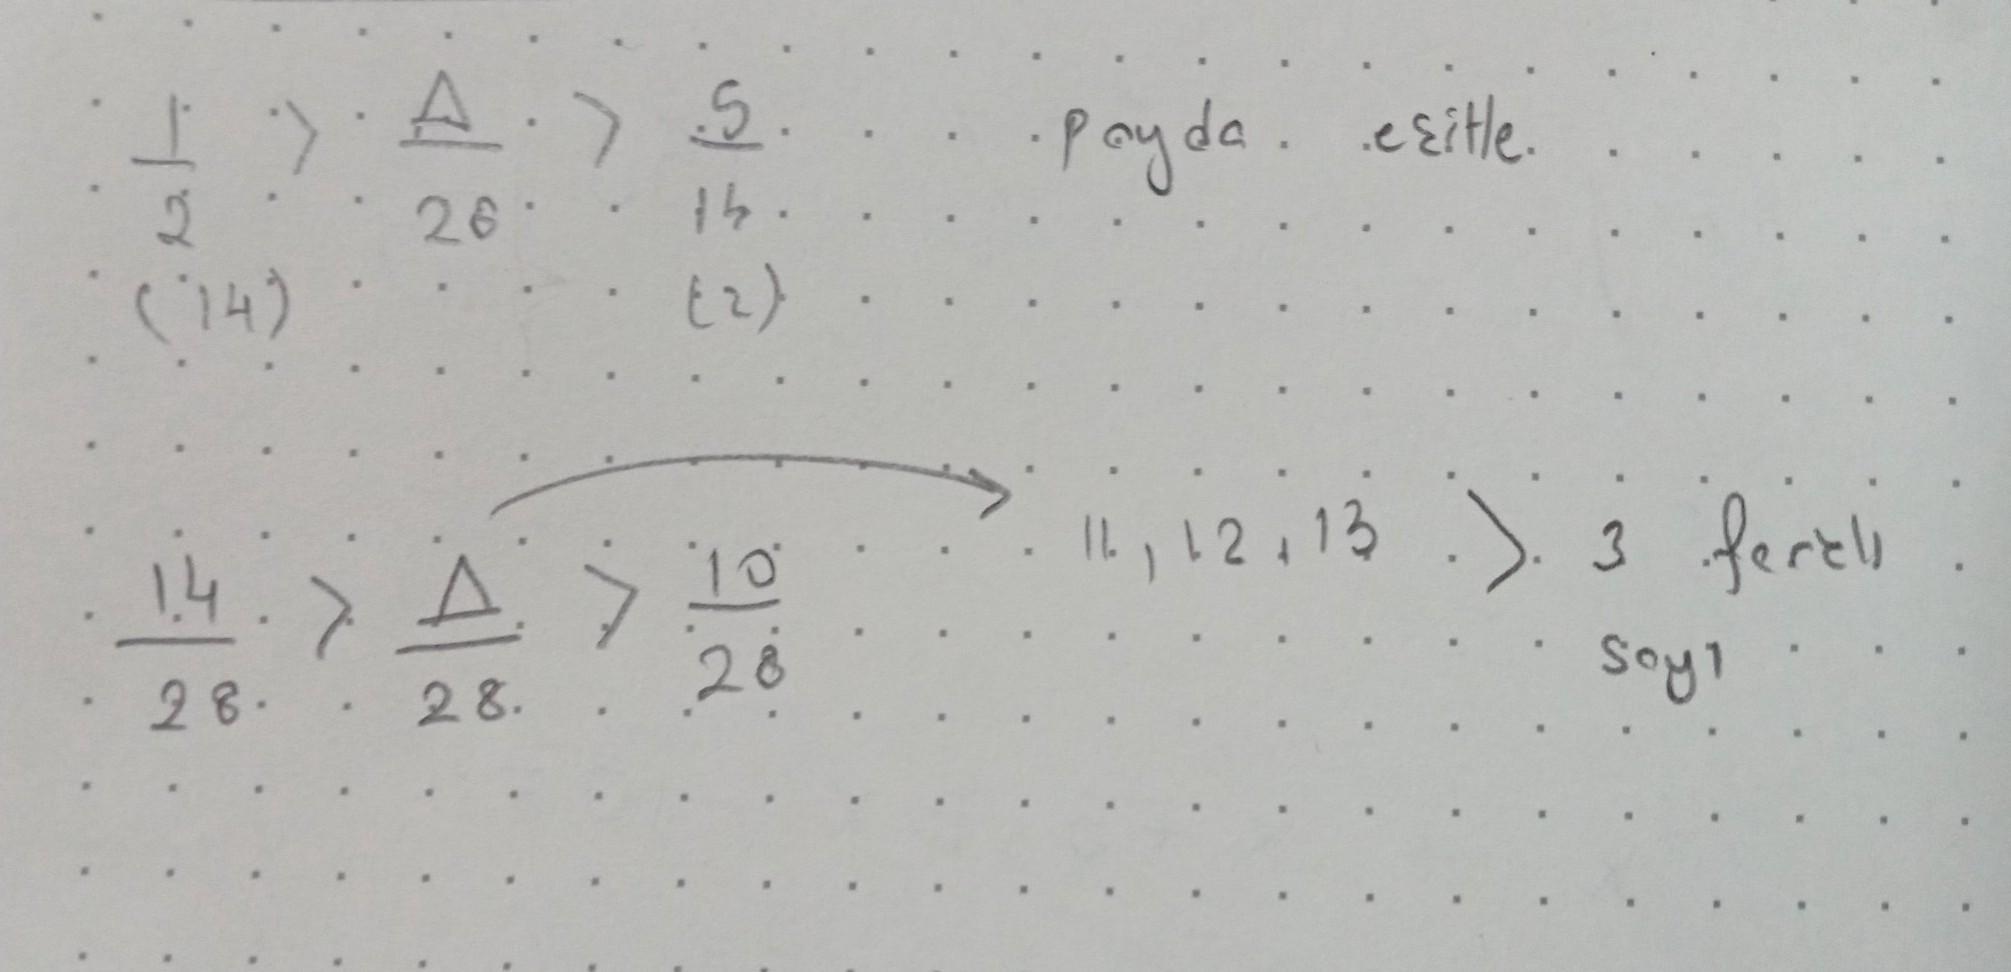 1/2 > Δ/28 > 5/14 payda eşitle.
(14) (2)
14/28 > Δ/28 > 10/28 11, 12, 13 > 3 farklı
sayı